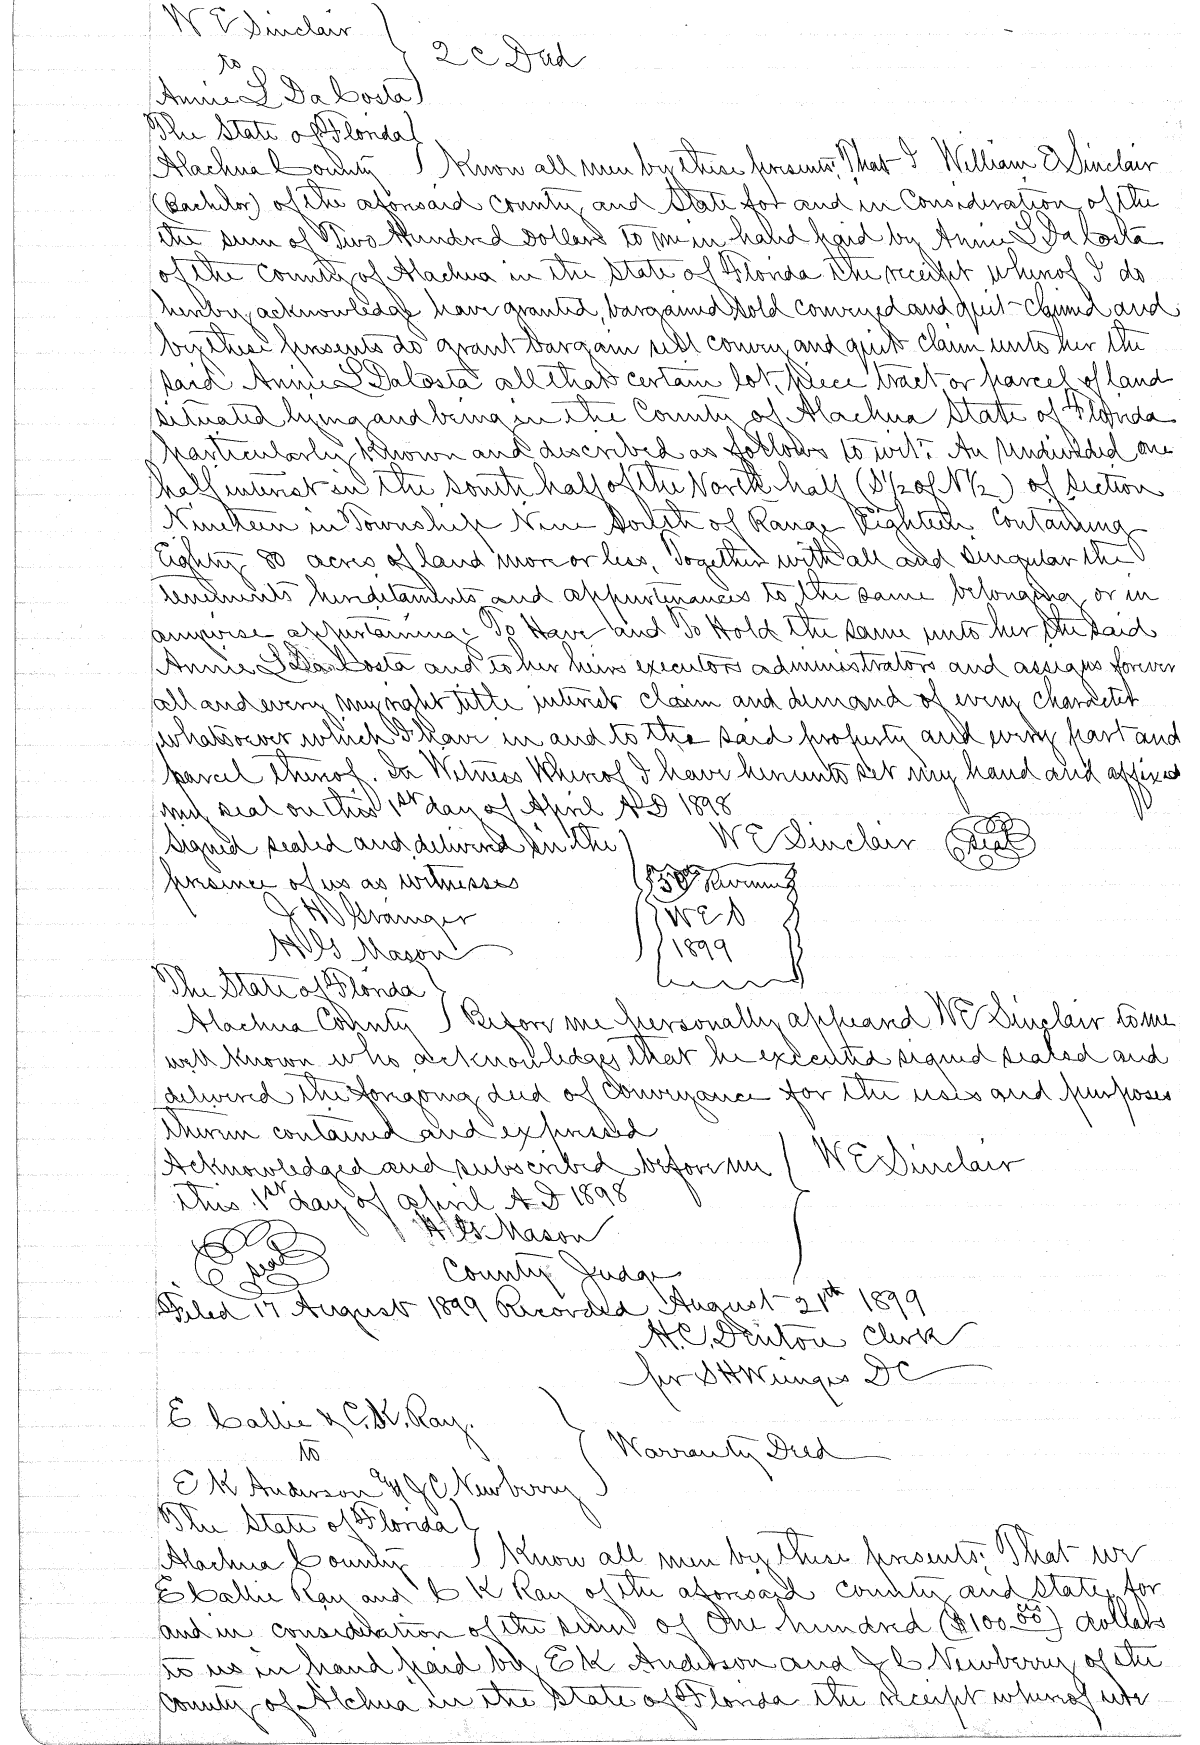 W E Sinclair
to
2 C Deed
Annie L DaCosta
The State of Florida
Alachua County Know all men by these presents, That I William E Sinclair
(Bachelor) of the aforesaid county and State for and in Consideration of the
the sum of Two Hundred Dollars to me in hand paid by Annie L DaCosta
of the County of Alachua in the State of Florida the receipt whereof I do
hereby acknowledge have granted, bargained sold conveyed and quit-claimed and
by these presents do grant bargain sell convey and quit claim unto her the
said Annie L DaCosta all that certain lot, piece tract or parcel of land
situated lying and being in the County of Alachua State of Florida
particularly known and described as follows to wit: An Undivided one
half interest in the South half of the North half (S 1/2 of N 1/2) of Section
Nineteen in Township Nine South of Range Eighteen Containing
Eighty 80 acres of land more or less, Together with all and singular the
tenements hereditaments and appurtenances to the same belonging or in
anywise appurtaining: To Have and To Hold the same unto her the said
Annie L Da Costa and to her heirs executors administrators and assigns forever
all and every my right title interest claim and demand of every character
whatsoever which I have in and to the said property and every part and
parcel thereof. In Witness Whereof I have hereunto set my hand and affixed
my seal on this 1st day of April A D 1898
Signed sealed and delivered in the W E Sinclair Seal
presence of us as witnesses Revenue
J H Grainger W E S
H G Mason 1899
The State of Florida
Alachua County Before me personally appeared W E Sinclair to me
well known who acknowledges that he executed signed sealed and
delivered the foregoing deed of Conveyance for the uses and purposes
therein contained and expressed
Acknowledged and subscribed before me W E Sinclair
this 1st day of April A D 1898
H G Mason
Seal
County Judge
Filed 17 August 1899 Recorded August 21th 1899
H. C. Denton Clerk
per S H Wienges D C
E Callie & C. K. Ray.
to
Warranty Deed
E K Anderson & J C Newberry
The State of Florida
Alachua County Know all men by these presents: That we
E Callie Ray and C K Ray of the aforesaid county and State, for
and in consideration of the sum of One hundred ($100.00) dollars
to us in hand paid by E K Anderson and J C Newberry of the
County of Alchua in the State of Florida the receipt whereof we